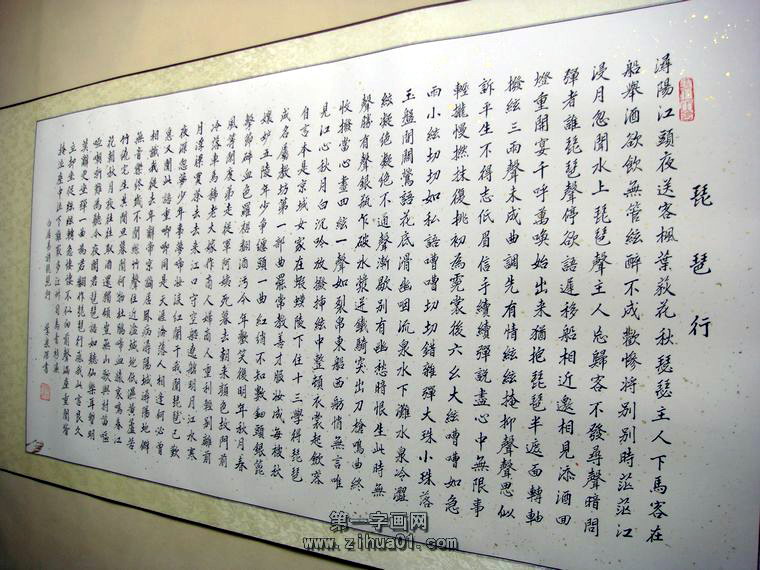 琵琶行
潯陽江頭夜送客楓葉荻花秋瑟瑟主人下馬客在
船舉酒欲飲無管絃醉不成歡慘將別別時茫茫江
浸月忽聞水上琵琶聲主人忘歸客不發尋聲暗問
彈者誰琵琶聲停欲語遲移船相近邀相見添酒回
燈重開宴千呼萬喚始出来猶抱琵琶半遮面轉軸
撥絃三兩聲未成曲調先有情絃絃掩抑聲聲思似
訴平生不得志低眉信手續續彈説盡心中無限事
輕攏慢撚抹復挑初為霓裳後六幺大絃嘈嘈如急
雨小絃切切如私語嘈嘈切切錯雜彈大珠小珠落
玉盤間關鶯語花底滑幽咽流泉水下灘水泉冷澀
絃凝絕凝絕不通聲漸歇別有幽愁暗恨生此時無
聲勝有聲銀瓶乍破水漿迸鐵騎突出刀槍鳴曲終
收撥當心畫四絃一聲如裂帛東船西舫悄無言唯
見江心秋月白沉吟放撥插絃中整頓衣裳起歛容
自言本是京城女家在蝦蟆陵下住十三學得琵琶
成名屬教坊第一部曲罷常教善才服妝成每被秋
孃妒五陵年少爭纏頭一曲紅綃不知數鈿頭銀篦
擊節碎血色羅裙翻酒污今年歡笑復明年秋月春
風等閒度弟走從軍阿姨死暮去朝来顔色故門前
冷落車馬稀老大嫁作商人婦商人重利輕別離前
月浮梁買茶去去来江口守空船遶船明月江水寒
夜深忽夢少年事夢啼妝淚紅闌干我聞琵琶已歎
息又聞此語重唧唧同是天涯淪落人相逢何必曾
相識我從去年辭帝京謫居卧病潯陽城潯陽地僻
無音樂終歲不聞絲竹聲住近湓城地低濕黃蘆苦
竹繞宅生其間旦暮聞何物杜鵑啼血猿哀鳴春江
花朝秋月夜往往取酒還獨傾豈無山歌與村笛嘔
啞嘲哳難為聽今夜聞君琵琶語如聽仙樂耳暫明
莫辭更坐彈一曲為君翻作琵琶行感我此言良久
立却坐促絃絃轉急淒淒不似向前聲滿座重聞皆
掩泣座中泣下誰最多江州司馬青衫濕
白居易詩琵琶行
書
第一字画网
www.zihua01.com